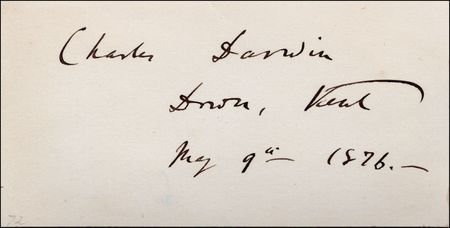 Charles Darwin
Down, Kent
May 9th — 1876. —
72